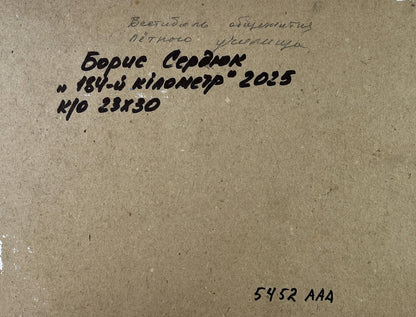 Вестибюль общежития
Лётного училища
Борис Сердюк
„184-й кілометр" 2025
к/о 23х30
5452 ААА